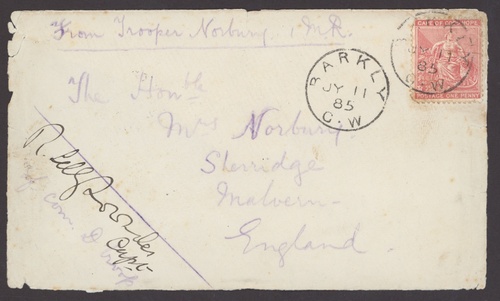 From Trooper Norbury, 1 M.R.
CAPE OF GOOD HOPE
POSTAGE ONE PENNY
BARKLY
JY 11
85
G.W
JY 11
85
G.W
The Honble
Mrs Norbury
Sherridge
Malvern
England
Capt.
com. D Troop